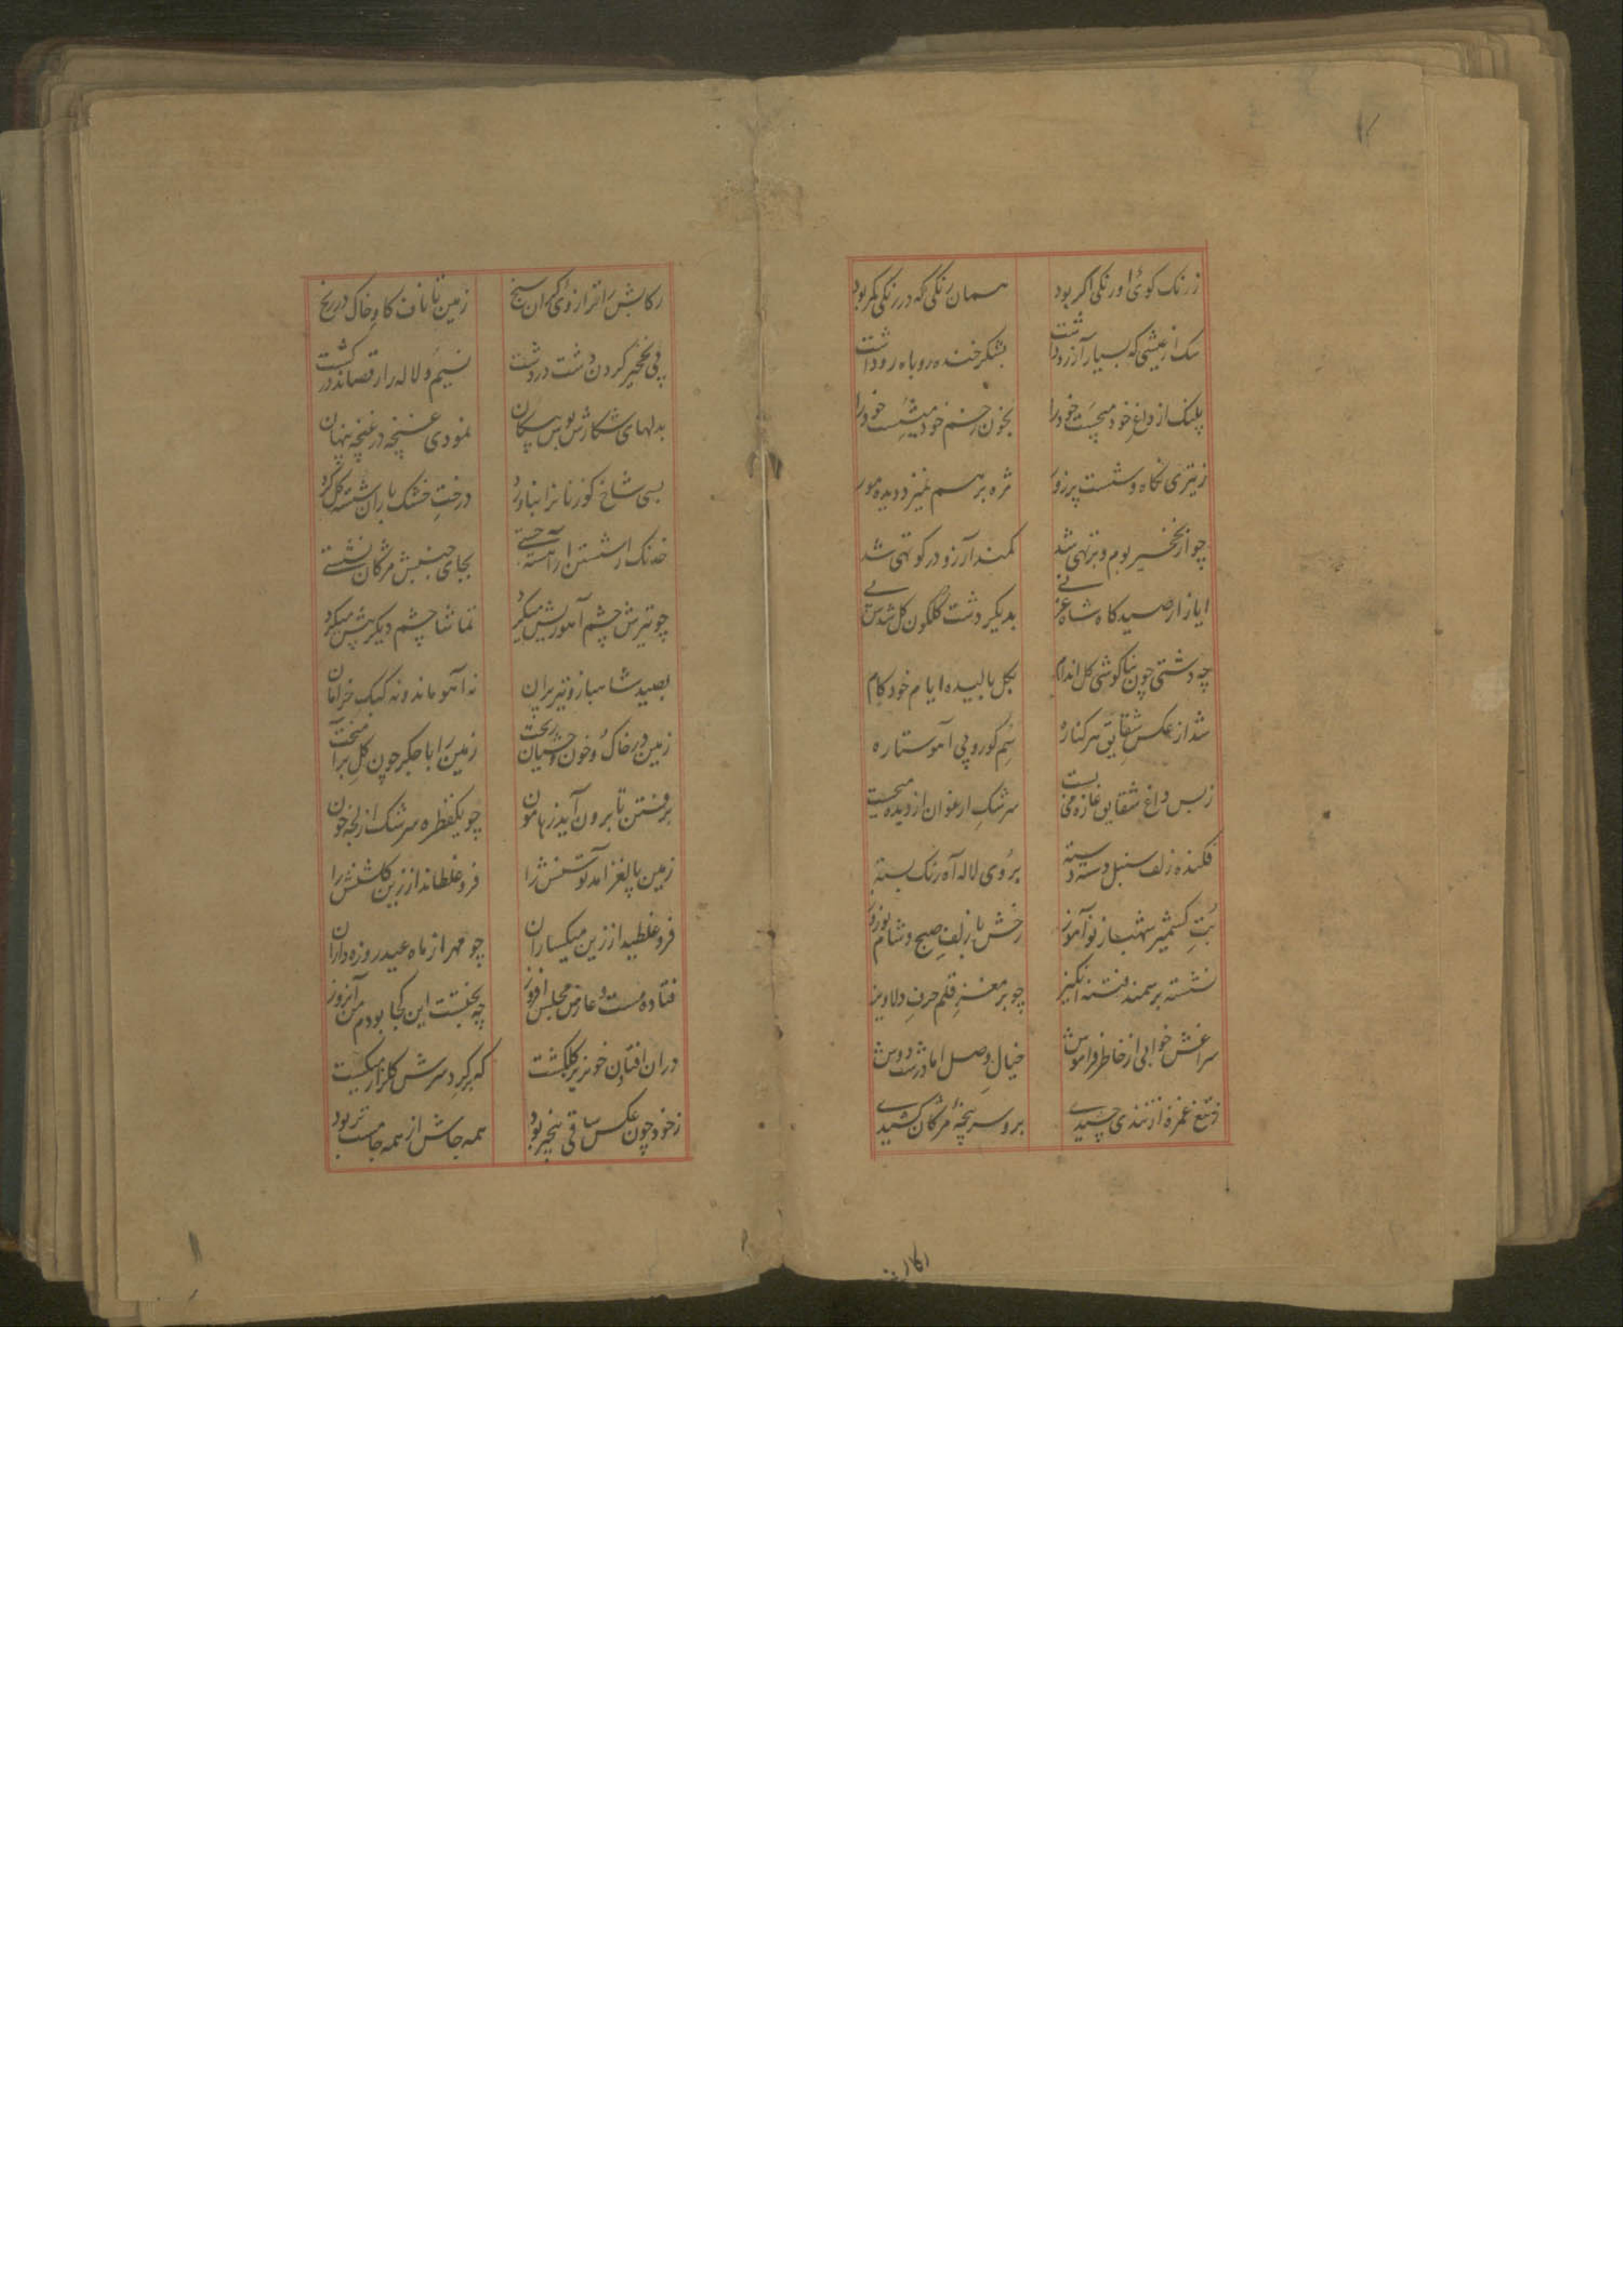 ز رنک کوئی او رنکی اکر بود
همان رنکی که در رنکی مکر بود
سک از عیشی که بسیار آرزو داشت
بشکر خنده روباه رو داشت
پلنک از داغ خود میچست خود را
بخون زخم خود میشست خود را
ز تیزی نکاه و شست پر زور
مژه بر هم نمیزد دیده مور
چو از نخچیر بوم و بر تهی شد
کمند آرزو در کوتهی شد
ایاز از صیدکاه شاه غزنی
بدیکر دشت کلکون کل شدش پی
چه دشتی چون بناکوشی کل اندام
بکل بالیده ایام خود کام
شد از عکس شقایق هر کناره
سم کور و پی آهو ستاره
ز بس داغ شقایق غازه می بست
سرشک ارغوان از دیده میجست
فکنده زلف سنبل دسته دسته
بروی لاله آه رنک بسته
بت کشمیر شهباز نو آموز
رخش با زلف صبح و شام نوروز
نشسته بر سمند فتنه انکیز
چو بر مغز قلم حرف دلاویز
سراغش خوابی از خاطر فراموش
خیال وصل اما در شب دوش
ز تیغ غمزه از تندی چشیدی
برو سرپنجه مژکان کشیدی
رکابش
رکابش را ترازوی کران سنج
زمین تا ناف کاو خاک در رنج
پی نخچیر کردن دشت در دشت
نسیم و لاله را رقصاند در کشت
بدلهای شکارش بوس پیکان
نمودی غنچه در غنچه پنهان
بسی شاخ کوزنانرا بناورد
درخت خشک باران شسته کل کرد
خدنک از شستن آهسته جستی
بجای جنبش مژکان نشستی
چو تیرش چشم آهو ریش میکرد
تماشا چشم دیکر پیش میکرد
بصید شاهباز و تیر پران
نه آهو ماند و نه کبک خرامان
زمین در خاک و خون وحشیان ریخت
زمین را با جکر چون کل بر آمیخت
برفتن تا برون آید ز هامون
چو یکقطره سرشک از لجه خون
زمین پا لغز آمد توسنش را
فرو غلطاند از زین کلشنش را
فرو غلطید از زین میکساران
چو مهر از ماه عید روزه داران
فتاده مست و عارض مجلس افروز
چه بختست این کجا بودم من آنروز
در آن افتادن خونریز کلکشت
که بر کرد سرش کلزار میکشت
ز خود چون عکس ساقی بیخبر بود
همه جاش از همه جا مست تر بود